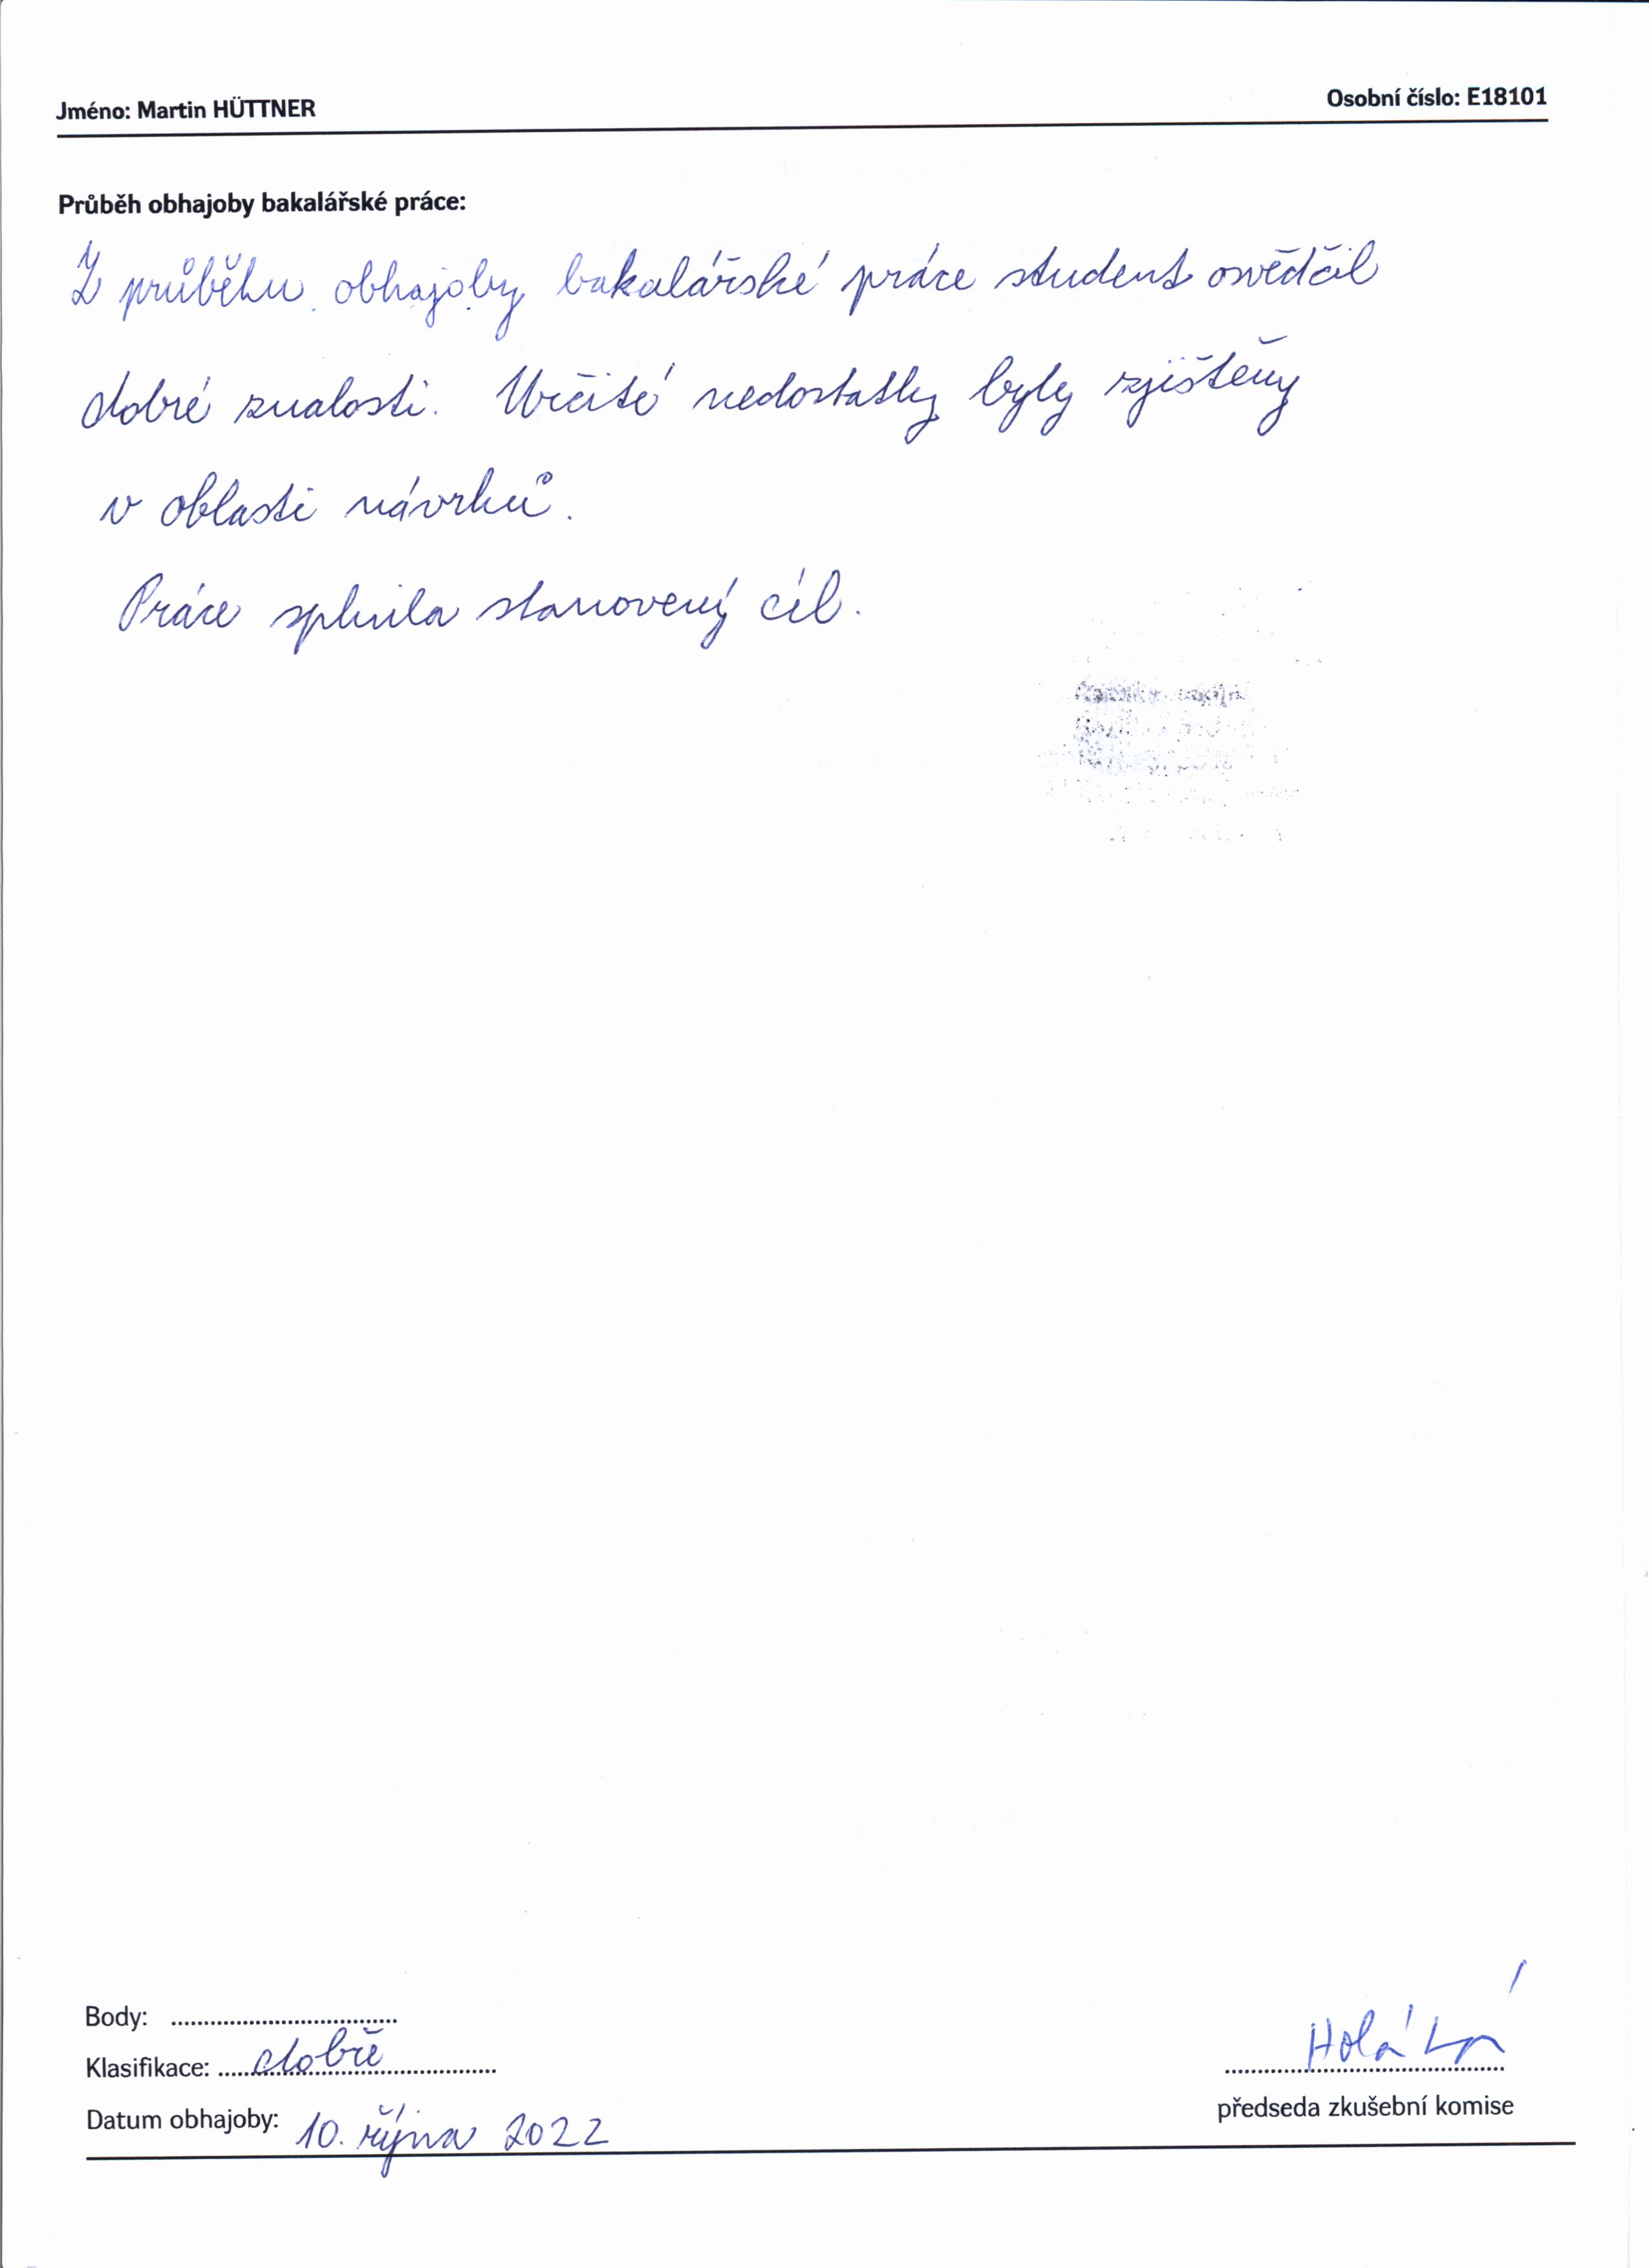 Jméno: Martin HÜTTNER Osobní číslo: E18101
Průběh obhajoby bakalářské práce:
Z průběhu obhajoby bakalářské práce student osvědčil
dobré znalosti. Určité nedostatky byly zjištěny
v oblasti návrhů.
Práce splnila stanovený cíl.
Body: ..................................
Klasifikace: ..... dobře .................
Datum obhajoby: 10. října 2022
předseda zkušební komise